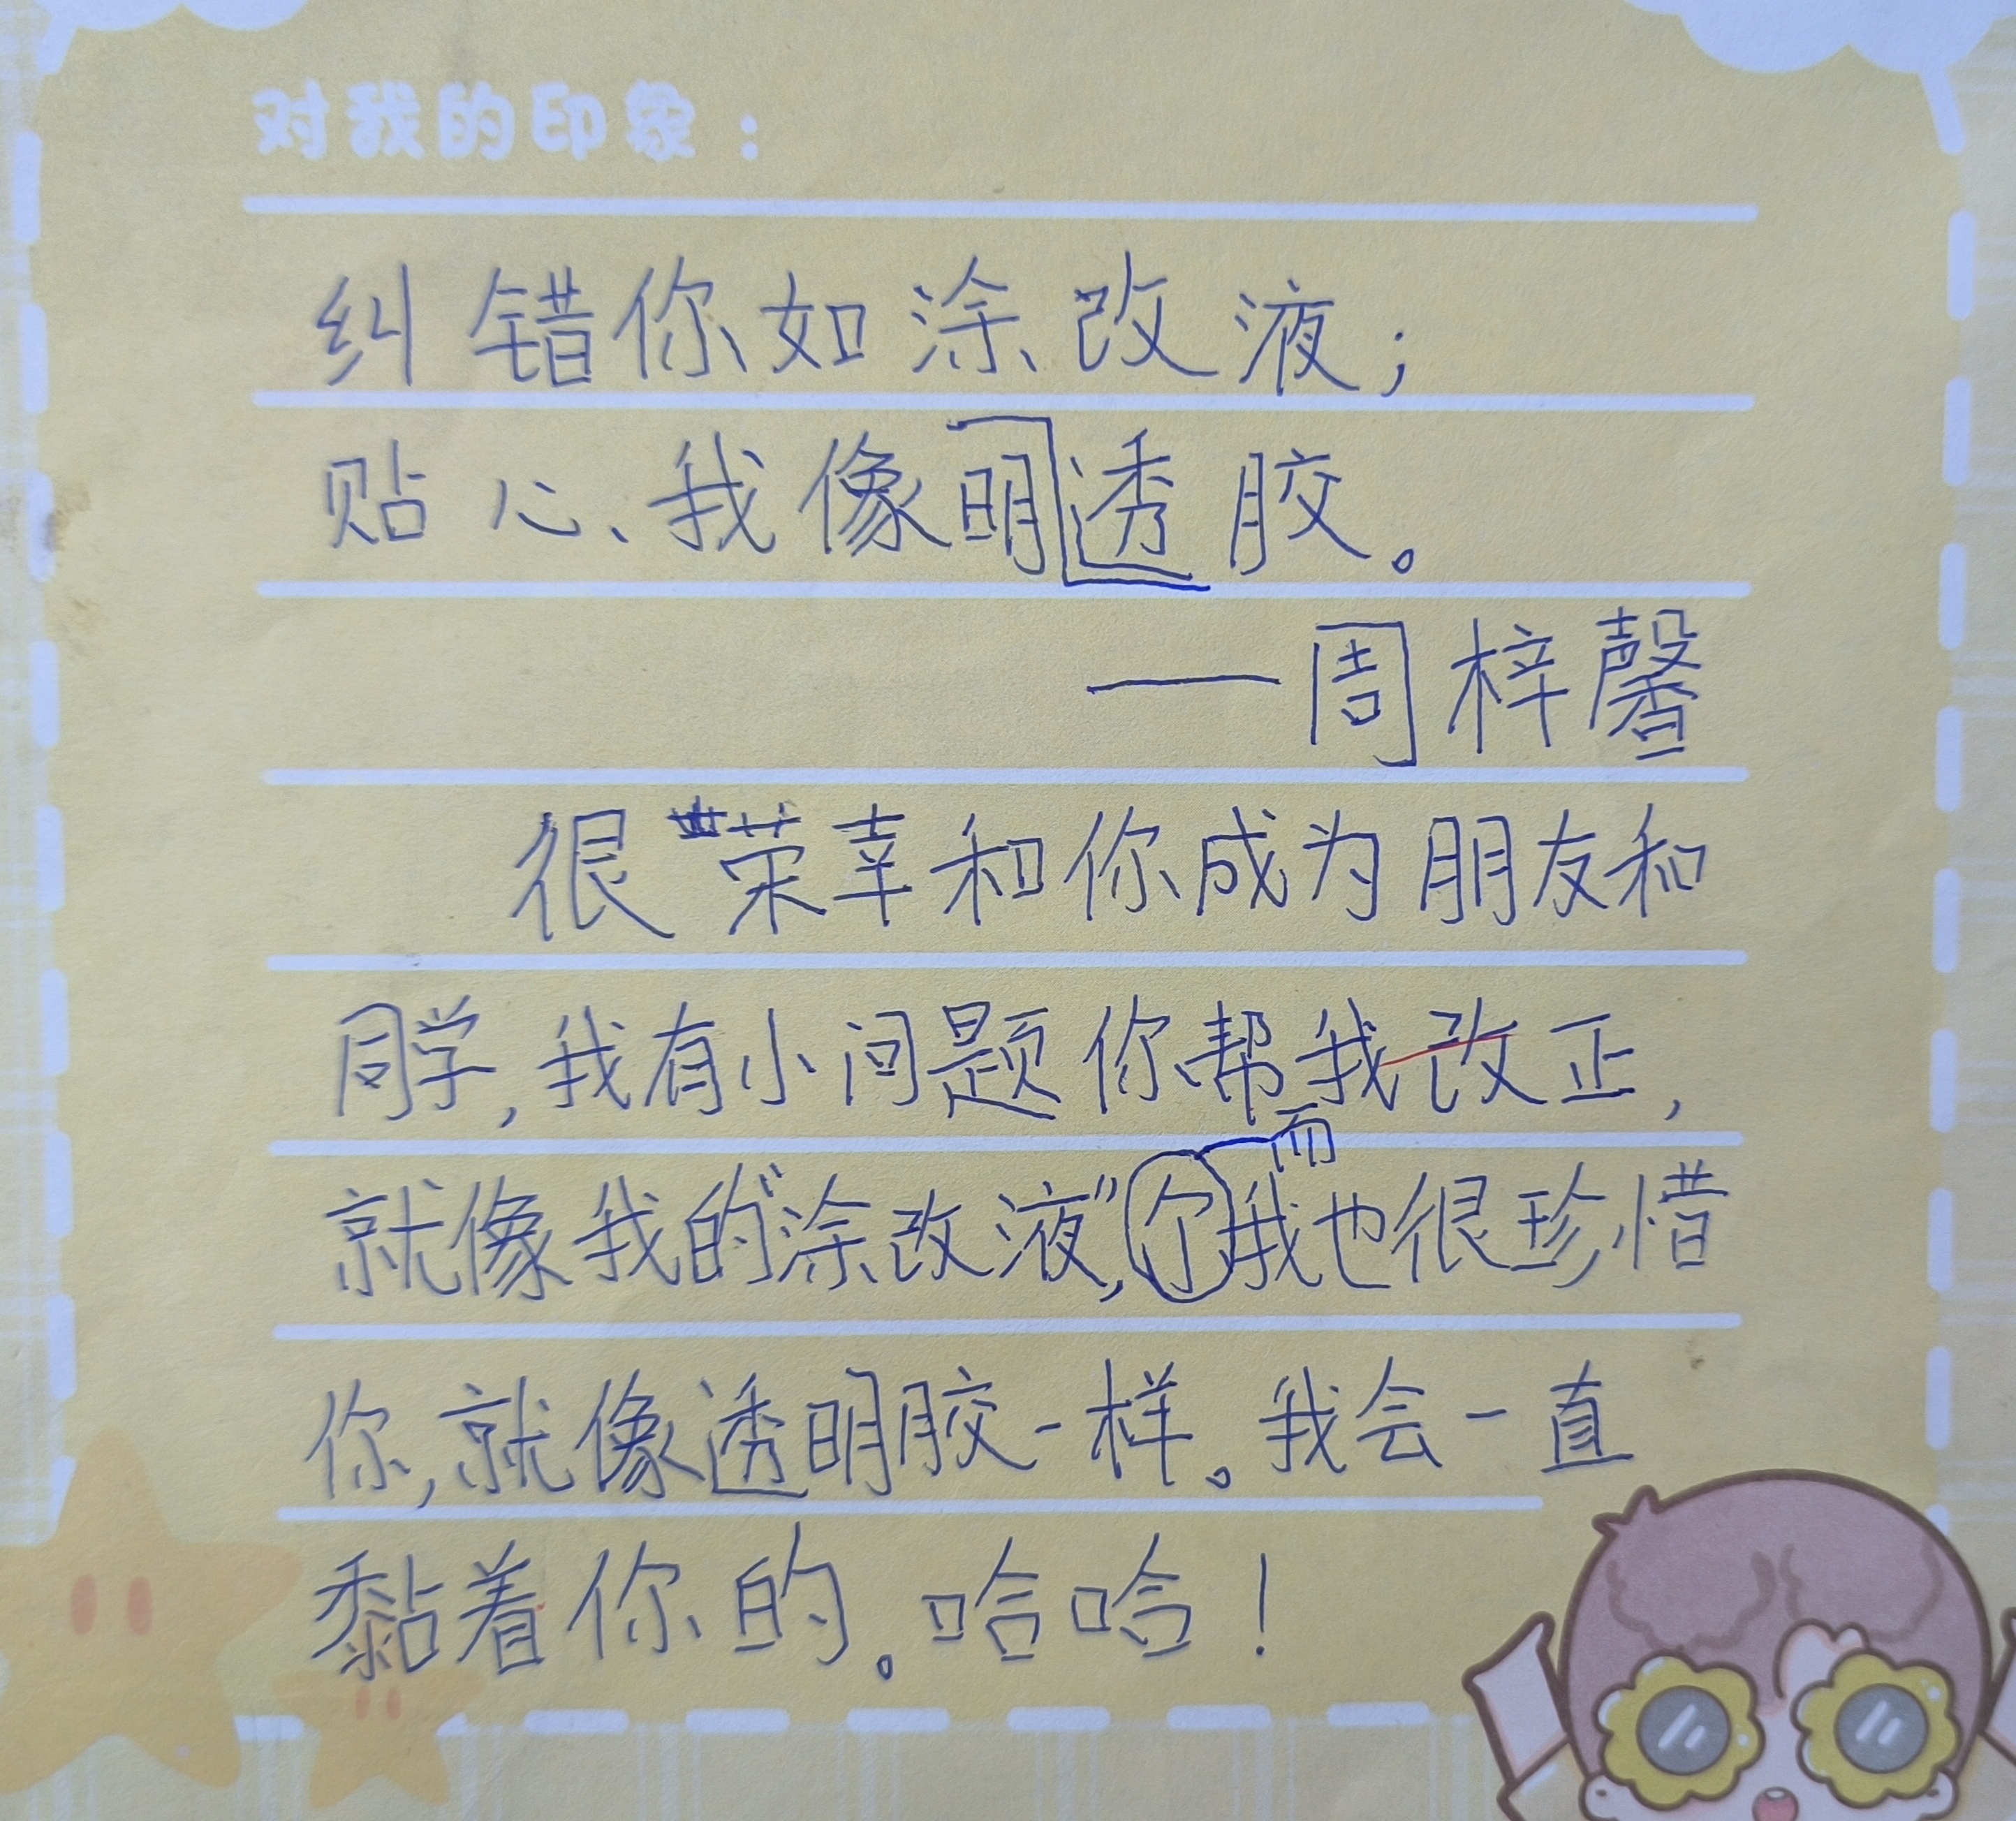 对我的印象：
纠错你如涂改液；
贴心、我像明透胶。
——周梓馨
很荣幸和你成为朋友和
同学，我有小问题你帮我改正，
就像我的“涂改液”，而我也很珍惜
你，就像透明胶一样。我会一直
黏着你的。哈哈！